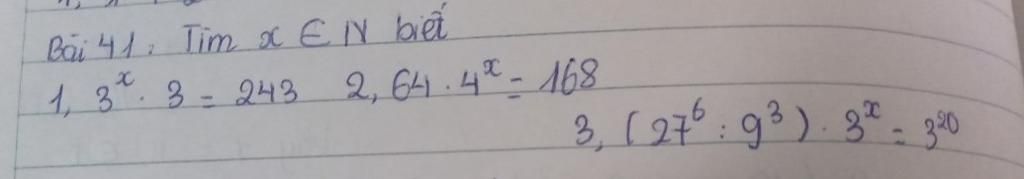 Bài 41: Tìm x ∈ N biết
1, 3ˣ . 3 = 243 2, 64 . 4ˣ = 168
3, (27⁶ : 9³) . 3ˣ = 3²⁰